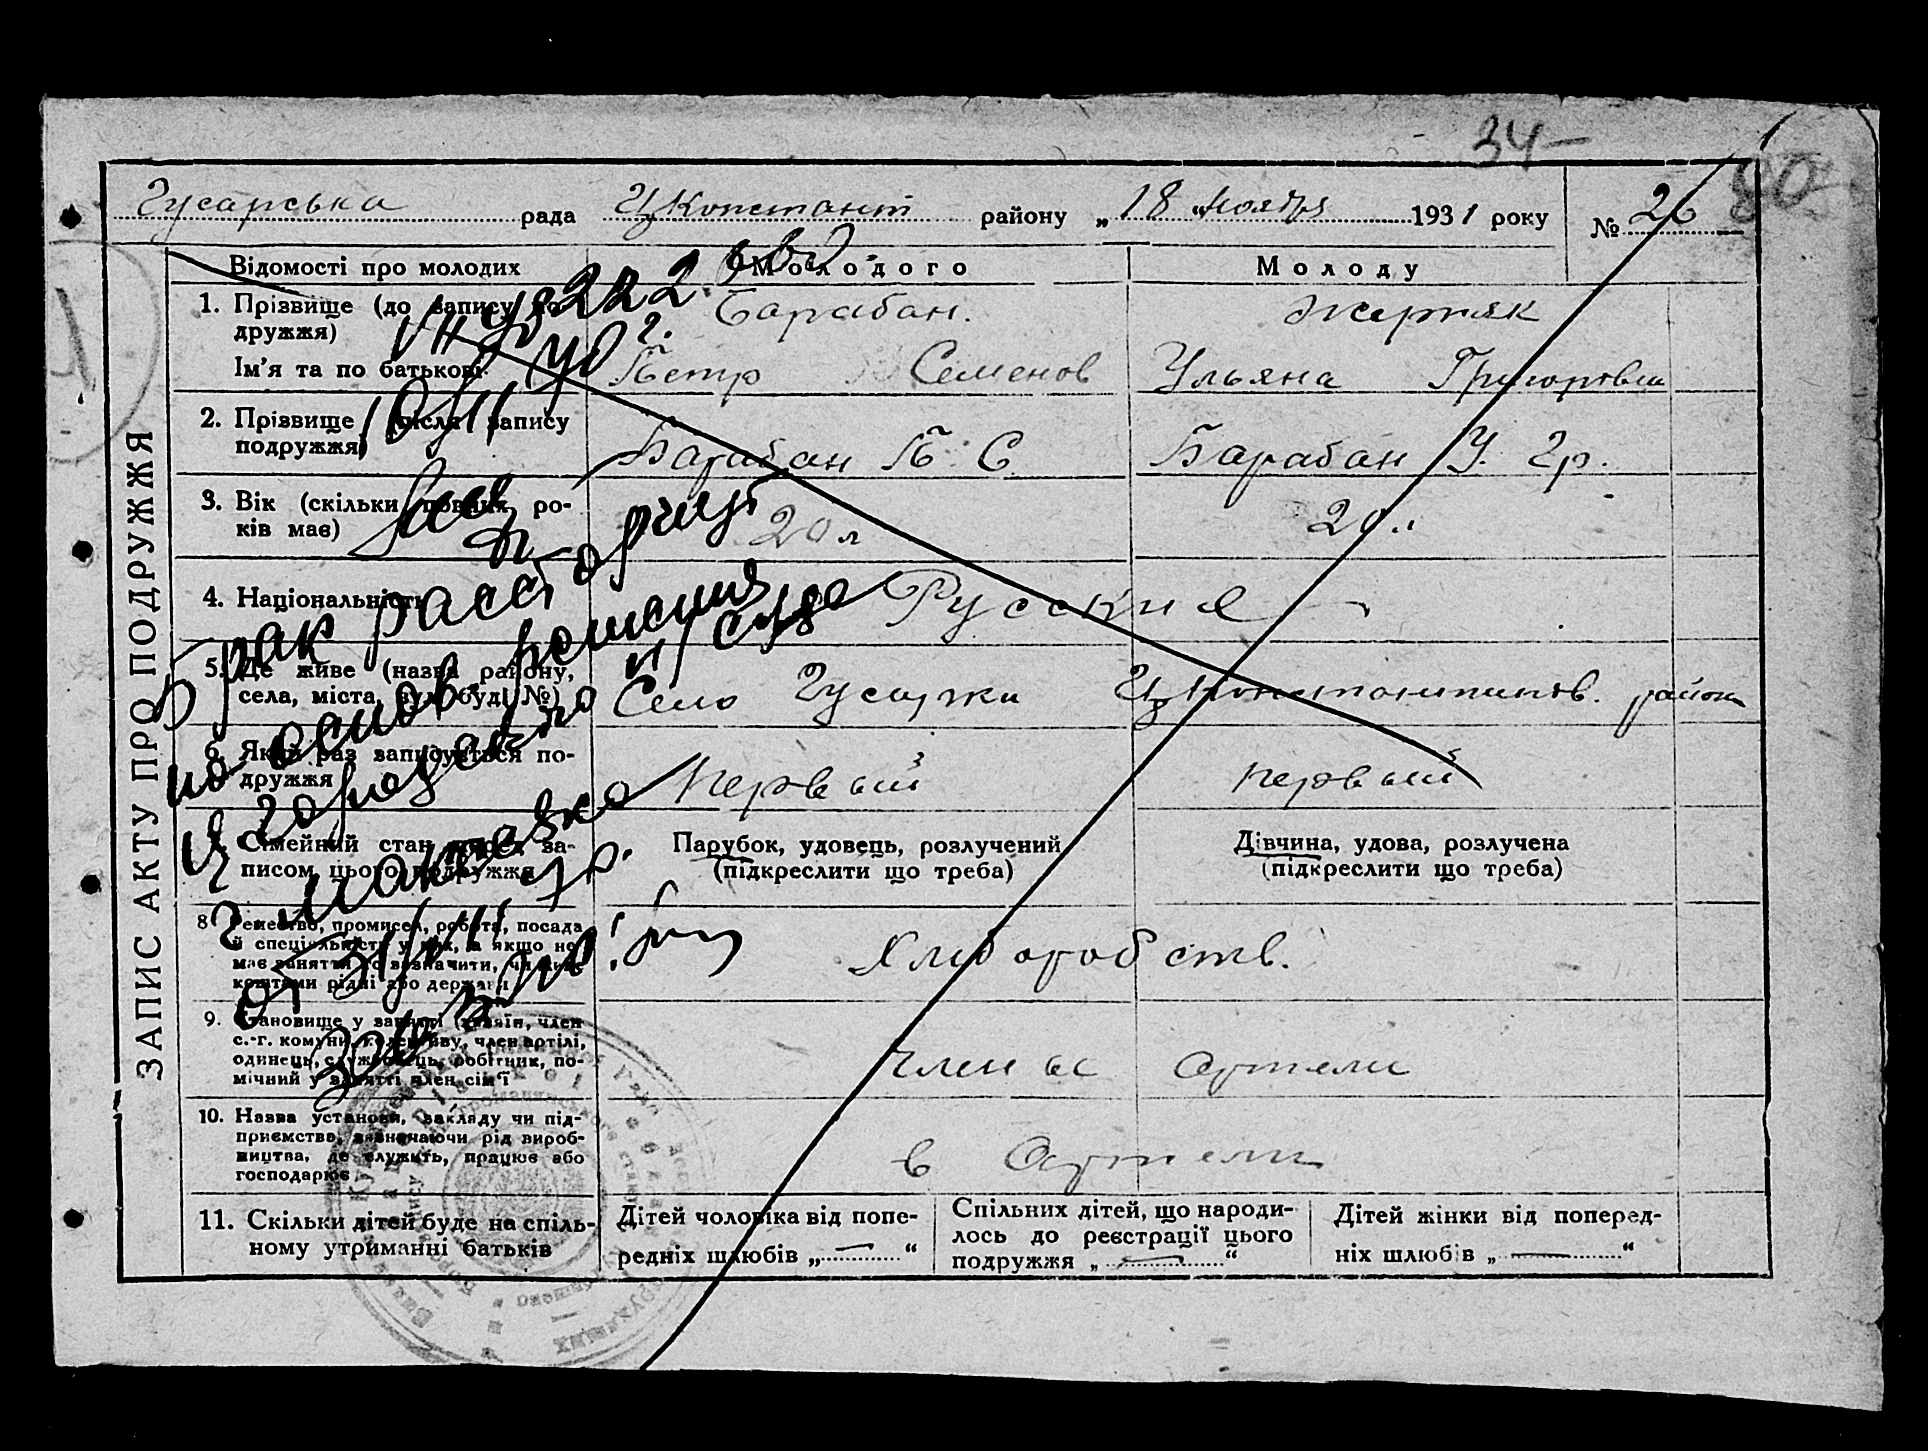 34-
80
Гусарська рада Ц Констант району „18" ноября 1931 року № 26
ЗАПИС АКТУ ПРО ПОДРУЖЖЯ
Відомості про молодих Молодого Молоду
1. Прізвище (до запису по-
дружжя) Барабан. Жерняк
Ім'я та по батькові Петр Семенов Ульяна Григоровна
2. Прізвище (після запису
подружжя) Барабан П С Барабан У. Гр.
3. Вік (скільки повних ро-
ків має) 20 л 20 „
4. Національність Русский
5. Де живе (назва району,
села, міста, вул. буд. №) Село Гусарки Цконстантинов. район
6. Який раз записується по-
дружжя Первый первый
7. Сімейний стан перед за-
писом цього подружжя Парубок, удовець, розлучений
(підкреслити що треба) Дівчина, удова, розлучена
(підкреслити що треба)
8. Ремество, промисел, робота, посада
й спеціяльність у них, а якщо не
має заняття то визначити, чи живе
коштами рідні або держави Хлиборобств.
9. Становище у занятті (хазяїн, член
с.-г. комуни, колективу, член артілі,
одинець, службовець, робітник, по-
мічний у занятті член сім'ї Члены артели
10. Назва установи, закладу чи під-
приємства, зазначаючи рід вироб-
ництва, де служить, працює або
господарює в Артели
11. Скільки дітей буде на спіль-
ному утриманні батьків
Дітей чоловіка від попе-
редніх шлюбів „—"
Спільних дітей, що народи-
лось до реєстрації цього
подружжя „—"
Дітей жінки від поперед-
ніх шлюбів „—"
222
Брак расторгнут
на основ. решения
н/суда
г. Макеевка
от 31/VII